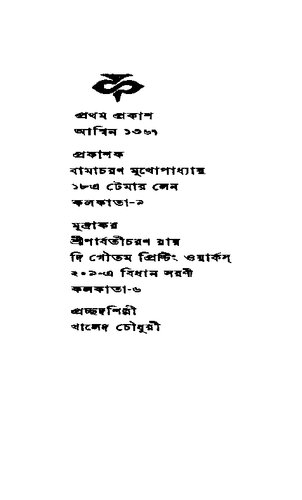 প্রথম প্রকাশ
আশ্বিন ১৩৬৭
প্রকাশক
বামাচরণ মুখোপাধ্যায়
১৮এ টেমার লেন
কলকাতা-৯
মুদ্রাকর
শ্রীপার্বতীচরণ রায়
দি গৌতম প্রিন্টিং ওয়ার্কস্
২০৯-এ বিধান সরণী
কলকাতা-৬
প্রচ্ছদশিল্পী
খালেদ চৌধুরী